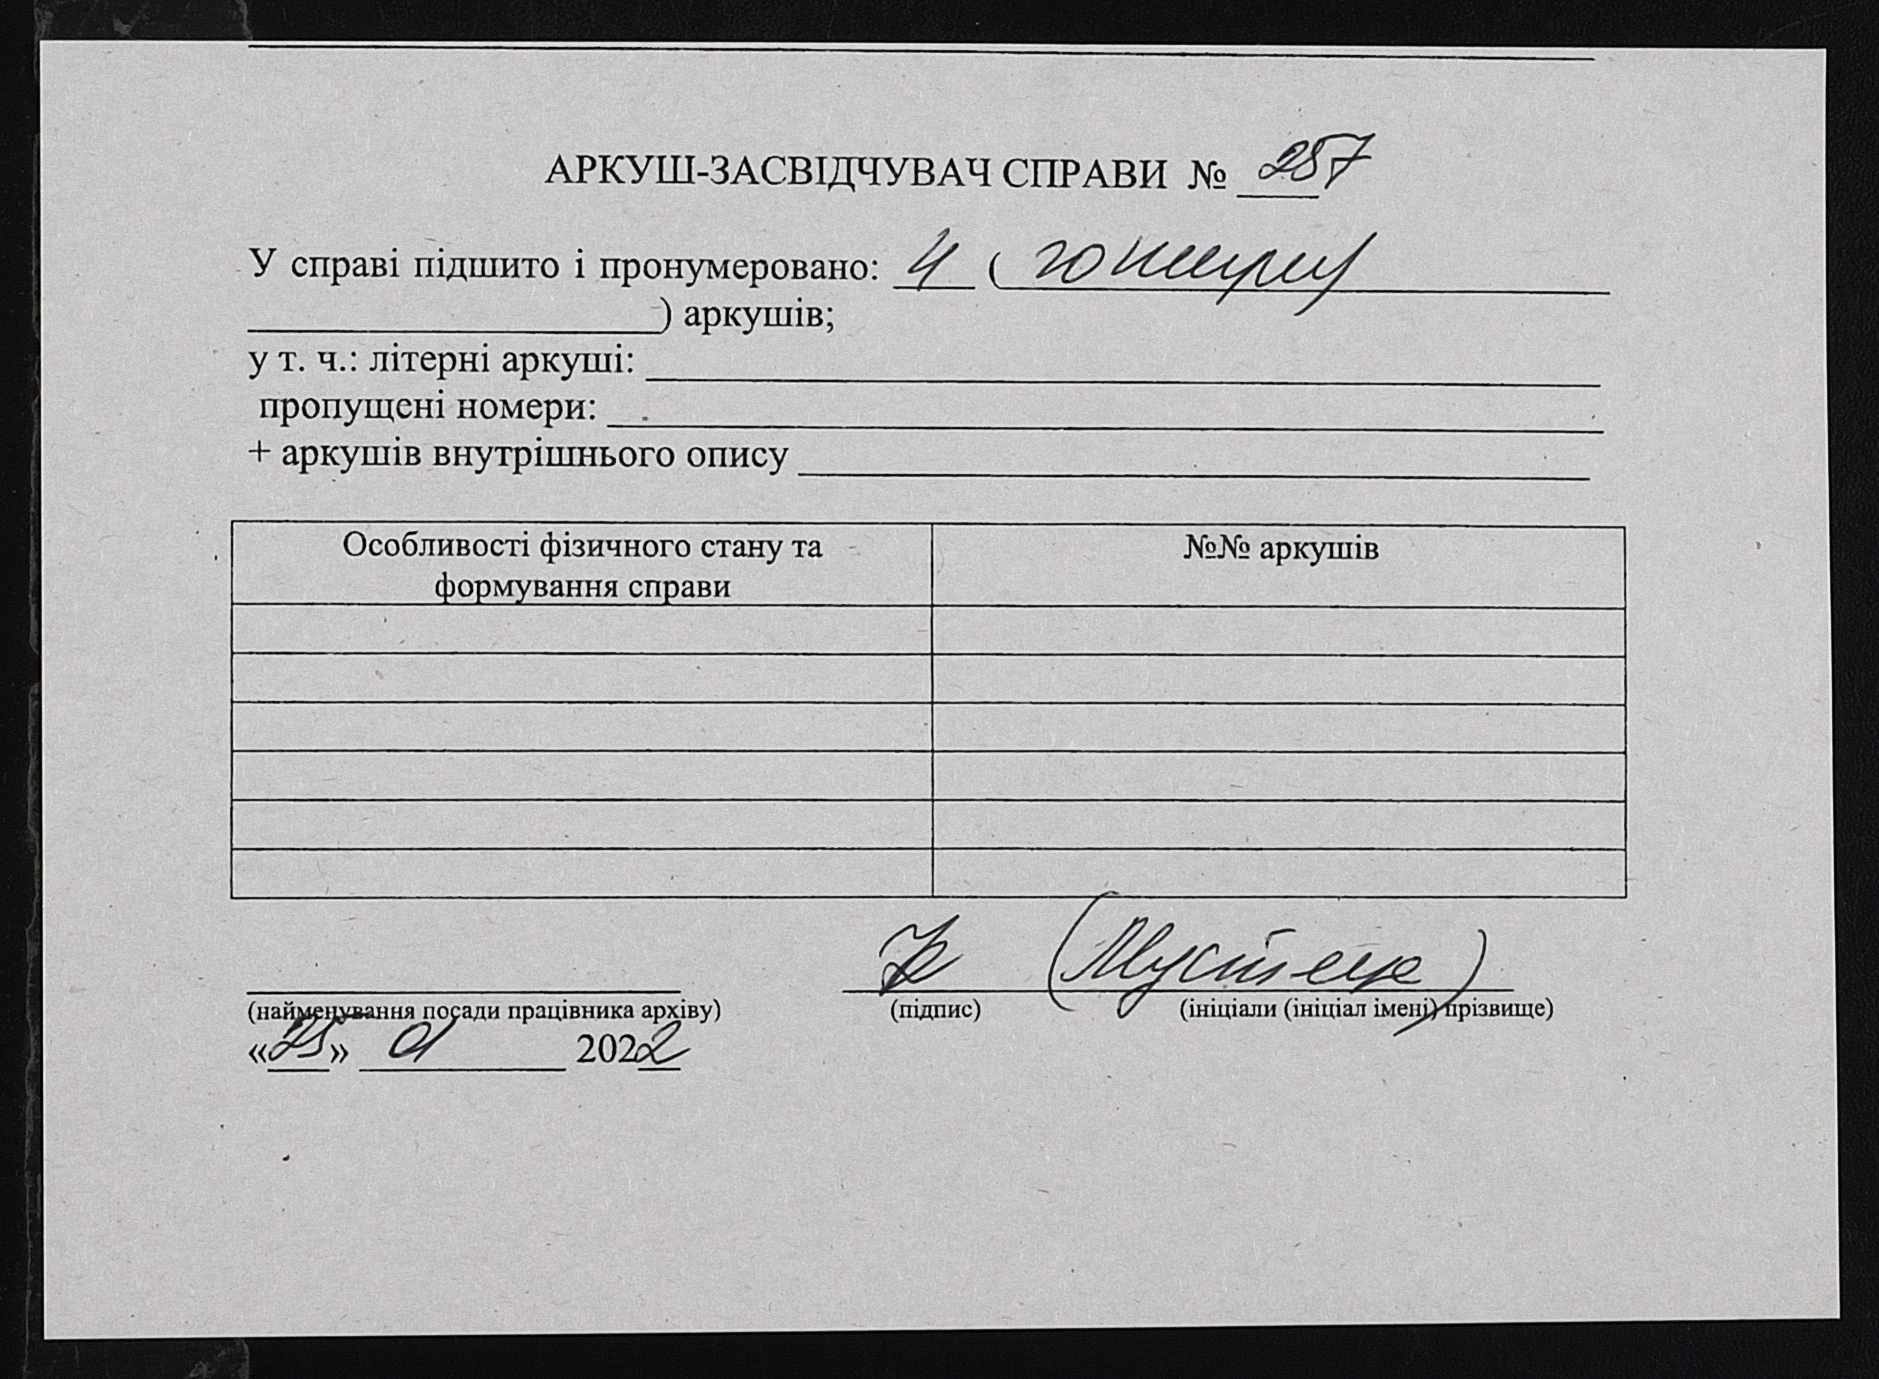 АРКУШ-ЗАСВІДЧУВАЧ СПРАВИ № 257
У справі підшито і пронумеровано: 4 (
) аркушів;
у т. ч.: літерні аркуші:
пропущені номери:
+ аркушів внутрішнього опису
Особливості фізичного стану та формування справи
№№ аркушів
(найменування посади працівника архіву) (підпис) (ініціали (ініціал імені) прізвище)
«25» 01 2022